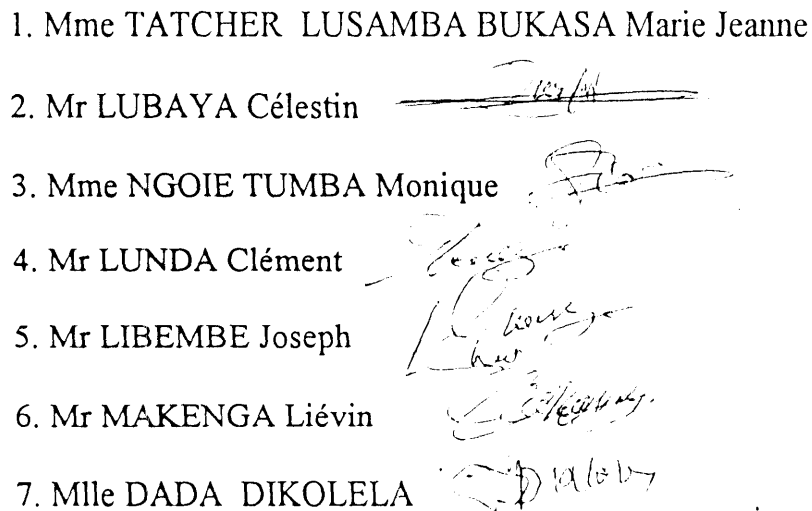 1. Mme TATCHER LUSAMBA BUKASA Marie Jeanne
2. Mr LUBAYA Célestin
3. Mme NGOIE TUMBA Monique
4. Mr LUNDA Clément
5. Mr LIBEMBE Joseph
6. Mr MAKENGA Liévin
7. Mlle DADA DIKOLELA